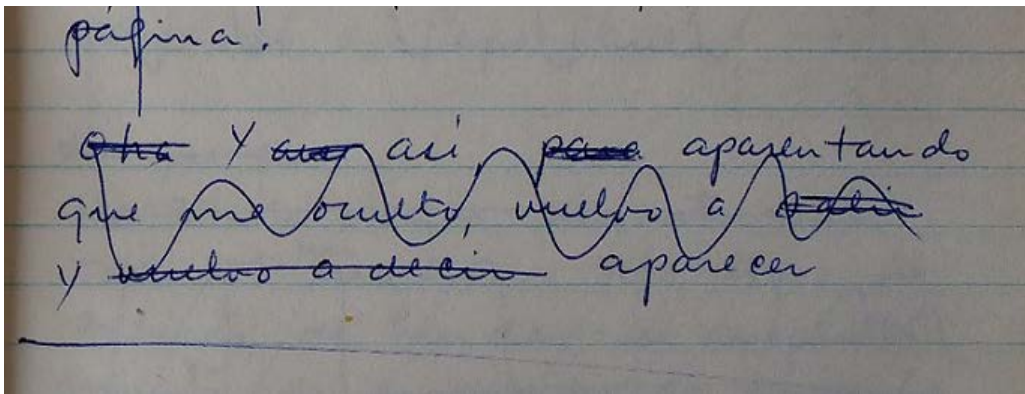 página!
otra Y así, para aparentando
que me oculto, vuelvo a salir
y vuelvo a decir aparecer